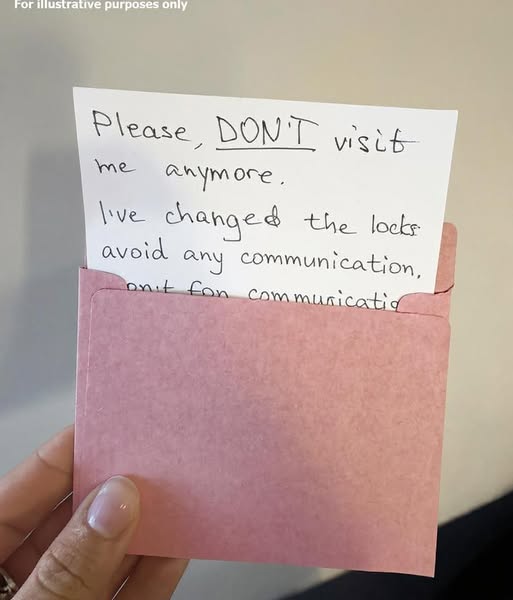 For illustrative purposes only
Please, DON'T visit
me anymore.
I've changed the locks
avoid any communication.
for communicatio